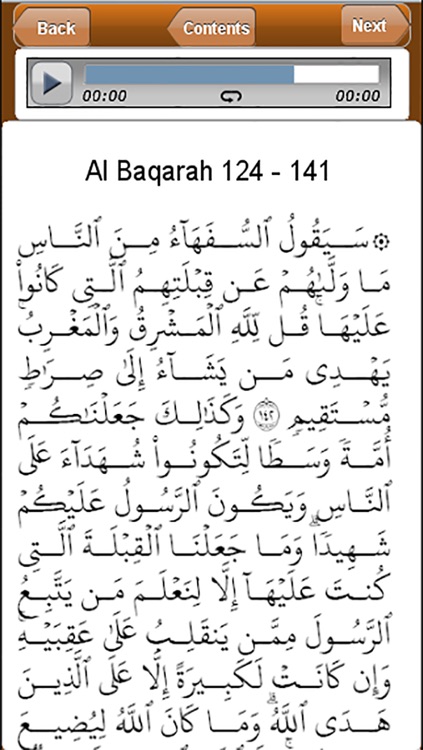 Back
Contents
Next
00:00
00:00
Al Baqarah 124 - 141
۞ سَيَقُولُ ٱلسُّفَهَآءُ مِنَ ٱلنَّاسِ
مَا وَلَّىٰهُمْ عَن قِبْلَتِهِمُ ٱلَّتِى كَانُوا۟
عَلَيْهَا ۚ قُل لِّلَّهِ ٱلْمَشْرِقُ وَٱلْمَغْرِبُ ۚ
يَهْدِى مَن يَشَآءُ إِلَىٰ صِرَٰطٍ
مُّسْتَقِيمٍ ١٤٢ وَكَذَٰلِكَ جَعَلْنَٰكُمْ
أُمَّةً وَسَطًا لِّتَكُونُوا۟ شُهَدَآءَ عَلَى
ٱلنَّاسِ وَيَكُونَ ٱلرَّسُولُ عَلَيْكُمْ
شَهِيدًا ۗ وَمَا جَعَلْنَا ٱلْقِبْلَةَ ٱلَّتِى
كُنتَ عَلَيْهَآ إِلَّا لِنَعْلَمَ مَن يَتَّبِعُ
ٱلرَّسُولَ مِمَّن يَنقَلِبُ عَلَىٰ عَقِبَيْهِ ۚ
وَإِن كَانَتْ لَكَبِيرَةً إِلَّا عَلَى ٱلَّذِينَ
هَدَى ٱللَّهُ ۗ وَمَا كَانَ ٱللَّهُ لِيُضِيعَ